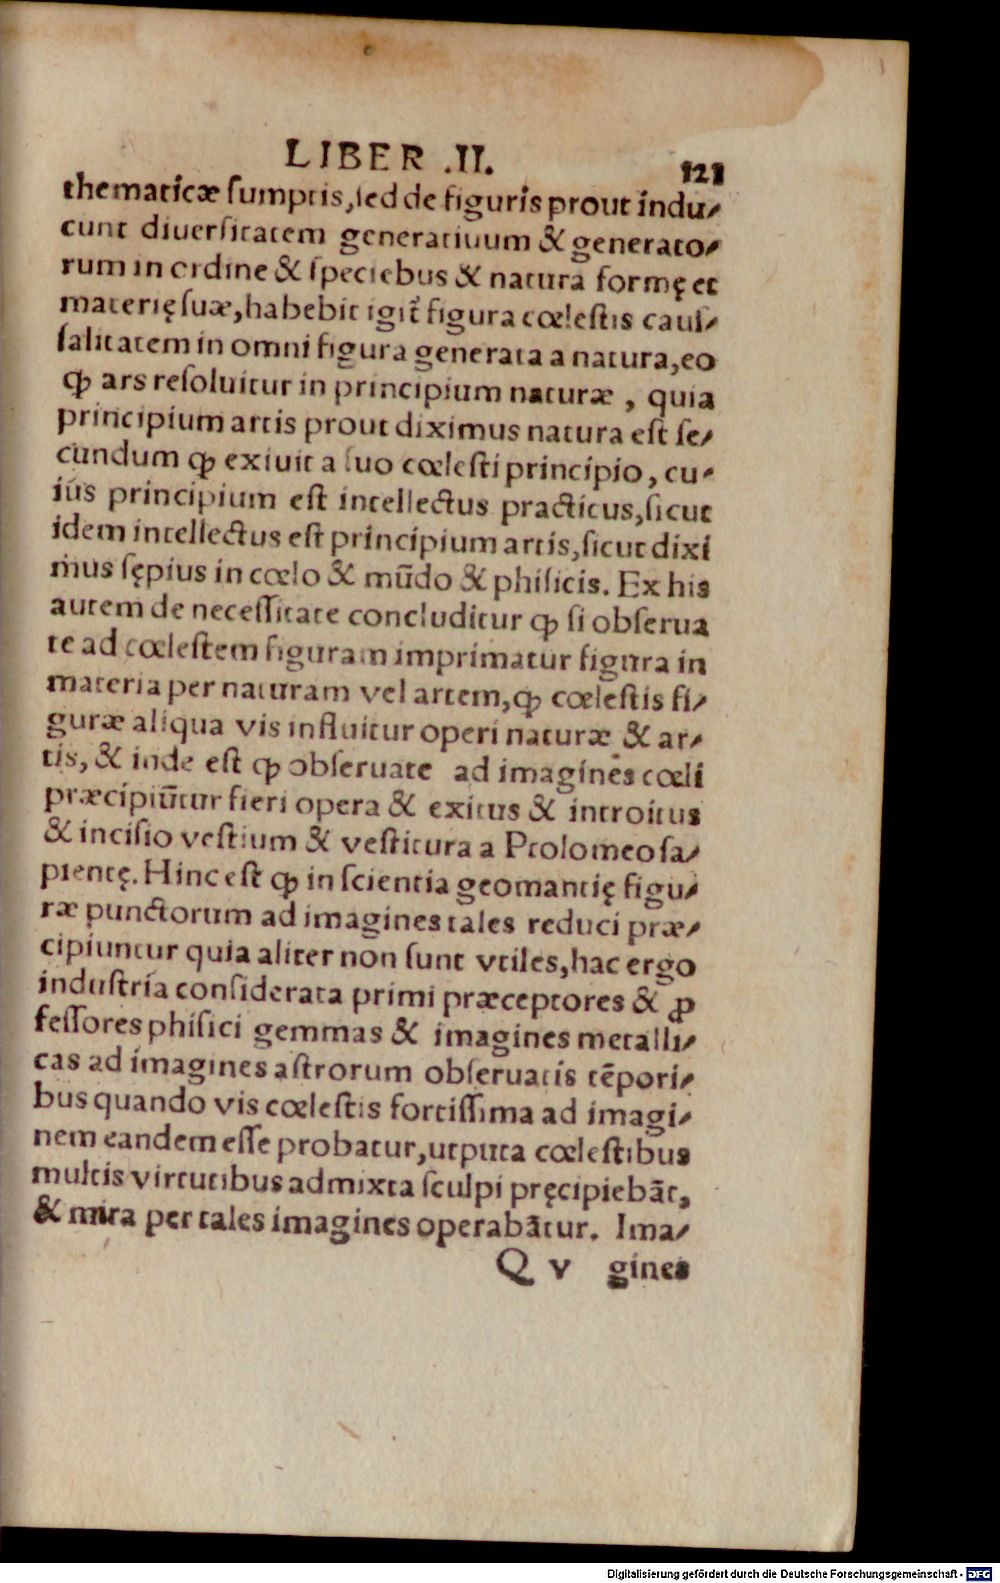 LIBER .II.
121
thematicæ ſumptis,ſed de figuris prout indu⸗
cunt diuerſitatem generatiuum & generato⸗
rum in ordine & ſpeciebus & natura formę et
materię ſuæ,habebit igit̃ figura cœleſtis cauſ⸗
ſalitatem in omni figura generata a natura,eo
ꝙ ars reſoluitur in principium naturæ , quia
principium artis prout diximus natura eſt ſe⸗
cundum ꝙ exiuit a ſuo cœleſti principio, cu⸗
ius principium eſt intellectus practicus,ſicut
idem intellectus eſt principium artis,ſicut dixi
mus ſępius in cœlo & mūdo & phiſicis. Ex his
autem de neceſſitate concluditur ꝙ ſi obſerua
te ad cœleſtem figuram imprimatur figura in
materia per naturam vel artem,ꝙ cœleſtis fi⸗
guræ aliqua vis influitur operi naturæ & ar⸗
tis, & inde eſt ꝙ obſeruate ad imagines cœli
præcipiūtur fieri opera & exitus & introitus
& inciſio veſtium & veſtitura a Ptolomeo ſa⸗
pientę. Hinc eſt ꝙ in ſcientia geomantię figu⸗
ræ punctorum ad imagines tales reduci præ⸗
cipiuntur quia aliter non ſunt vtiles,hac ergo
induſtria conſiderata primi præceptores & ꝓ
feſſores phiſici gemmas & imagines metalli⸗
cas ad imagines aſtrorum obſeruatis tēpori⸗
bus quando vis cœleſtis fortiſſima ad imagi⸗
nem eandem eſſe probatur,utputa cœleſtibus
multis virtutibus admixta ſculpi pręcipiebāt,
& mira per tales imagines operabātur. Ima⸗
Q v gines
Digitalisierung gefördert durch die Deutsche Forschungsgemeinschaft - DFG